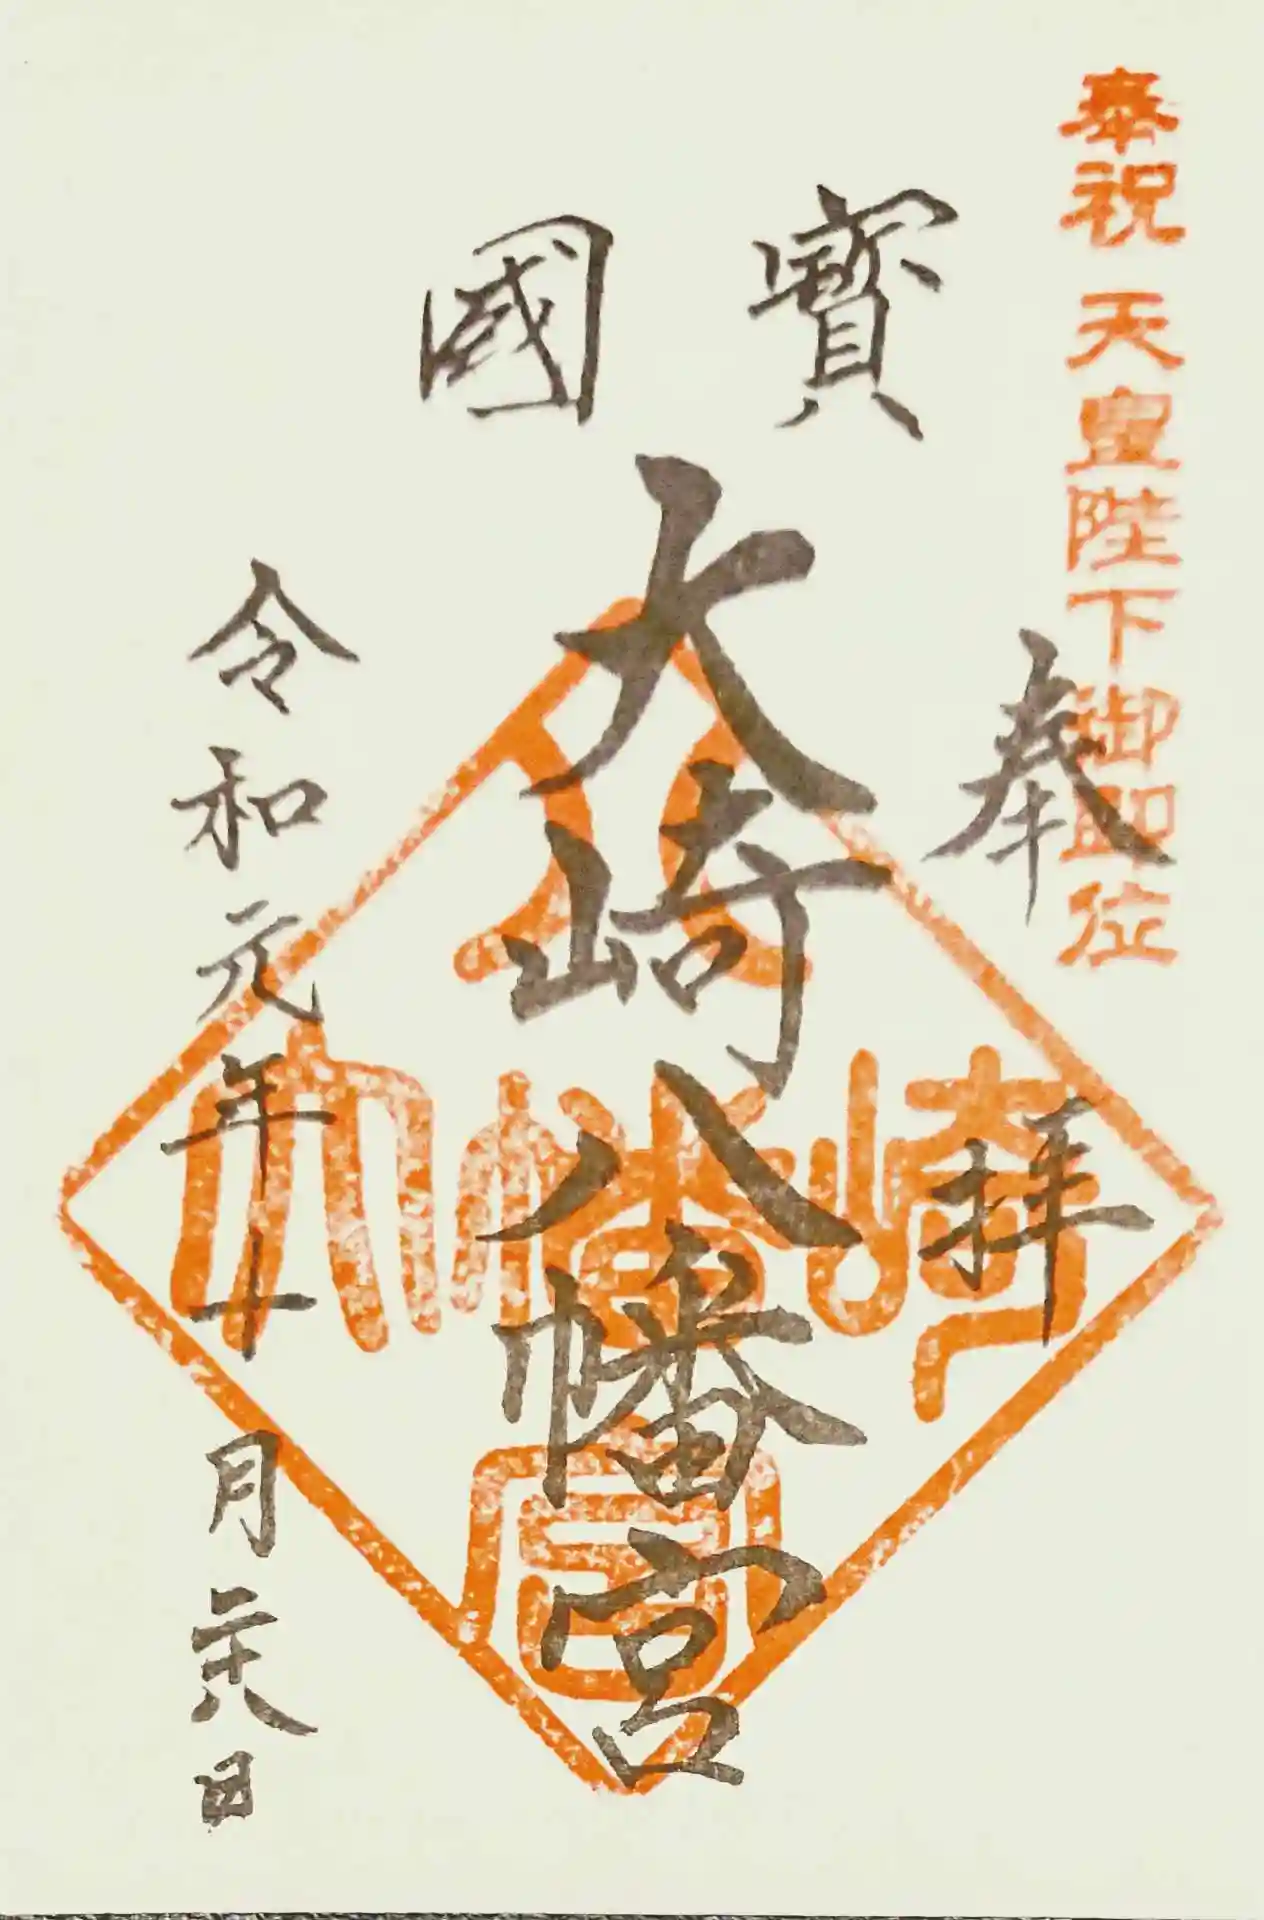 奉祝 天皇陛下御即位
奉拝
寳國
大崎八幡宮
八
大幡崎
宮
令和元年十月二十八日